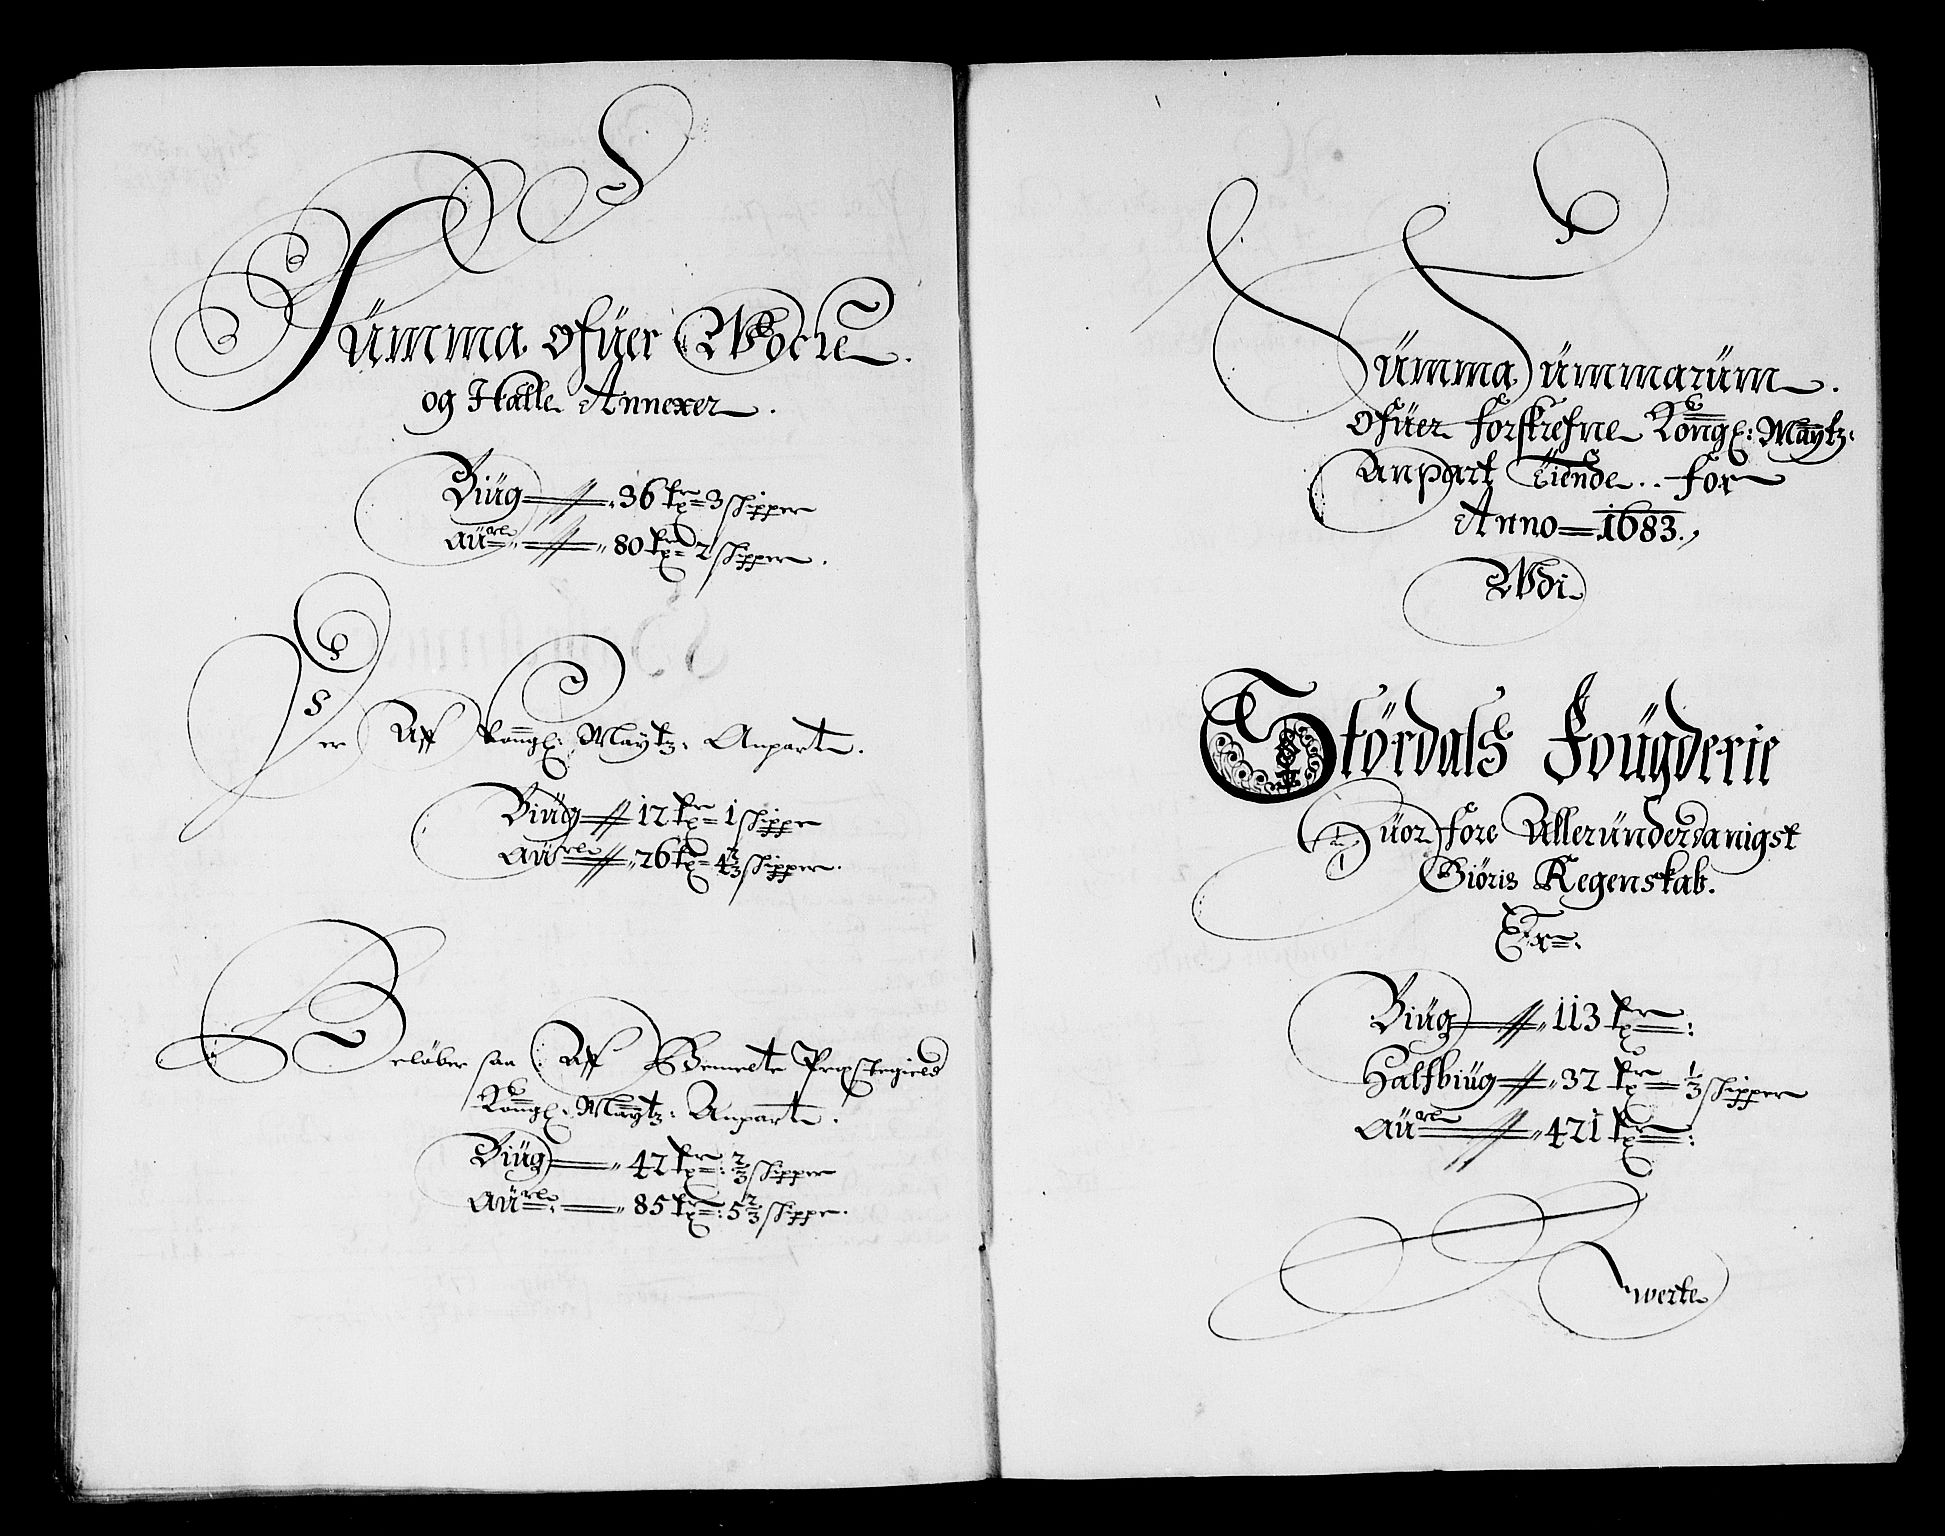 Summa ofüer Wocüe
og Halle Annexer.
Biüg 36 tr 3 skipper
Aürl 80 tr 2 skipper.
Er Aff Kongl: Maytz: Anpart.
Biüg 12 tr 1 skippe
Aürl 26 tr 4 2/3 skipper.
Beløber saa Aff Bemelte Prestegield
Kongl: Maytz: Anpart.
Biüg 42 tr: 2/3 skipper
Aürl: 85 tr: 5 2/3 skippr.
Summa Summarüm.
ofüer forskrefne Kongl: Maytz:
Anpart Tiende.. for
Anno 1683.,
Wdi
Stördals Fougderie
Hüor fore Alleründerdanigst
Giöris Regenskab.
Er:
Biüg 113 tr:
Halfbiüg 32 tr 1/3 skipper
Aürl 421 tr:
werte